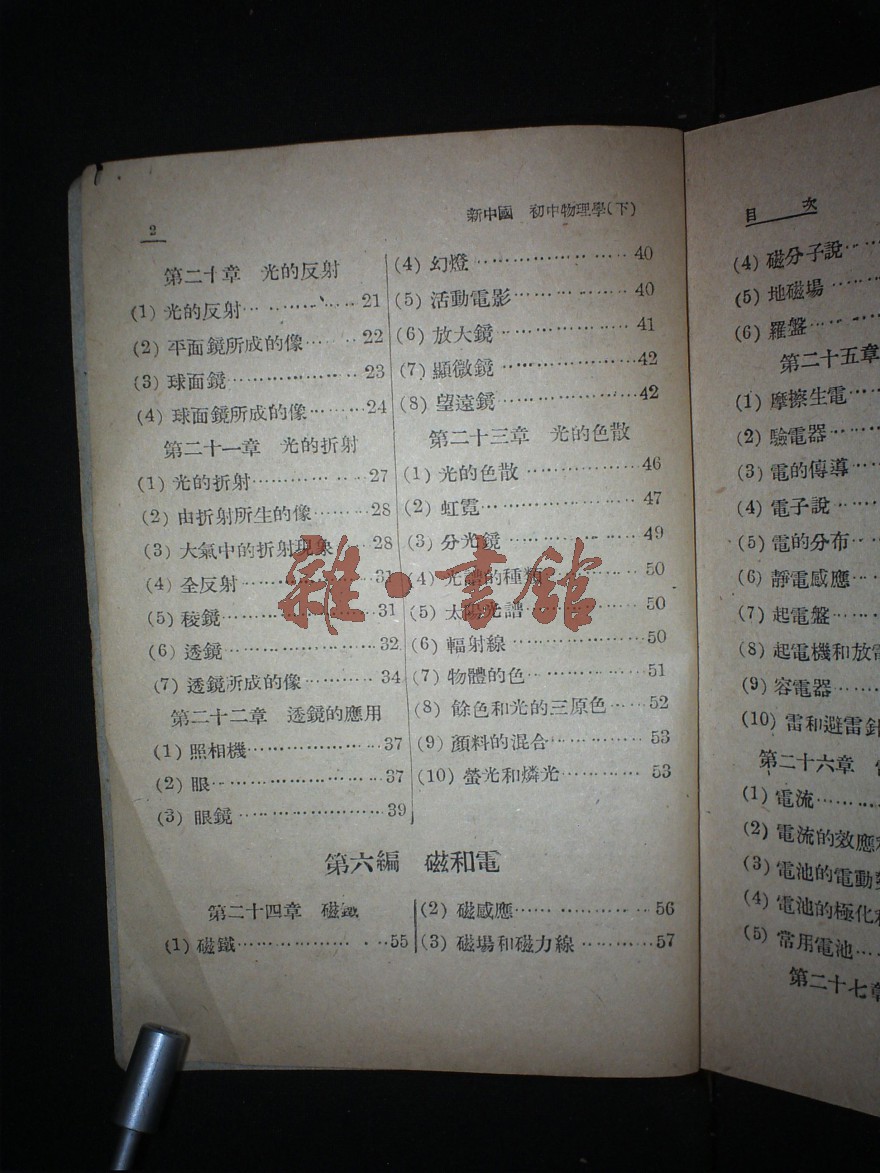 2
新中國 初中物理學(下)
第二十章 光的反射
(1) 光的反射 21
(2) 平面鏡所成的像 22
(3) 球面鏡 23
(4) 球面鏡所成的像 24
第二十一章 光的折射
(1) 光的折射 27
(2) 由折射所生的像 28
(3) 大氣中的折射現象 28
(4) 全反射 31
(5) 稜鏡 31
(6) 透鏡 32
(7) 透鏡所成的像 34
第二十二章 透鏡的應用
(1) 照相機 37
(2) 眼 37
(3) 眼鏡 39
(4) 幻燈 40
(5) 活動電影 40
(6) 放大鏡 41
(7) 顯微鏡 42
(8) 望遠鏡 42
第二十三章 光的色散
(1) 光的色散 46
(2) 虹霓 47
(3) 分光鏡 49
(4) 光譜的種類 50
(5) 太陽光譜 50
(6) 輻射線 50
(7) 物體的色 51
(8) 餘色和光的三原色 52
(9) 顏料的混合 53
(10) 螢光和燐光 53
第六編 磁和電
第二十四章 磁鐵
(1) 磁鐵 55
(2) 磁感應 56
(3) 磁場和磁力線 57
雜·書館
目次
(4) 磁分子說
(5) 地磁場
(6) 羅盤
第二十五章
(1) 摩擦生電
(2) 驗電器
(3) 電的傳導
(4) 電子說
(5) 電的分布
(6) 靜電感應
(7) 起電盤
(8) 起電機和放電
(9) 容電器
(10) 雷和避雷針
第二十六章
(1) 電流
(2) 電流的效應
(3) 電池的電動
(4) 電池的極化
(5) 常用電池
第二十七章